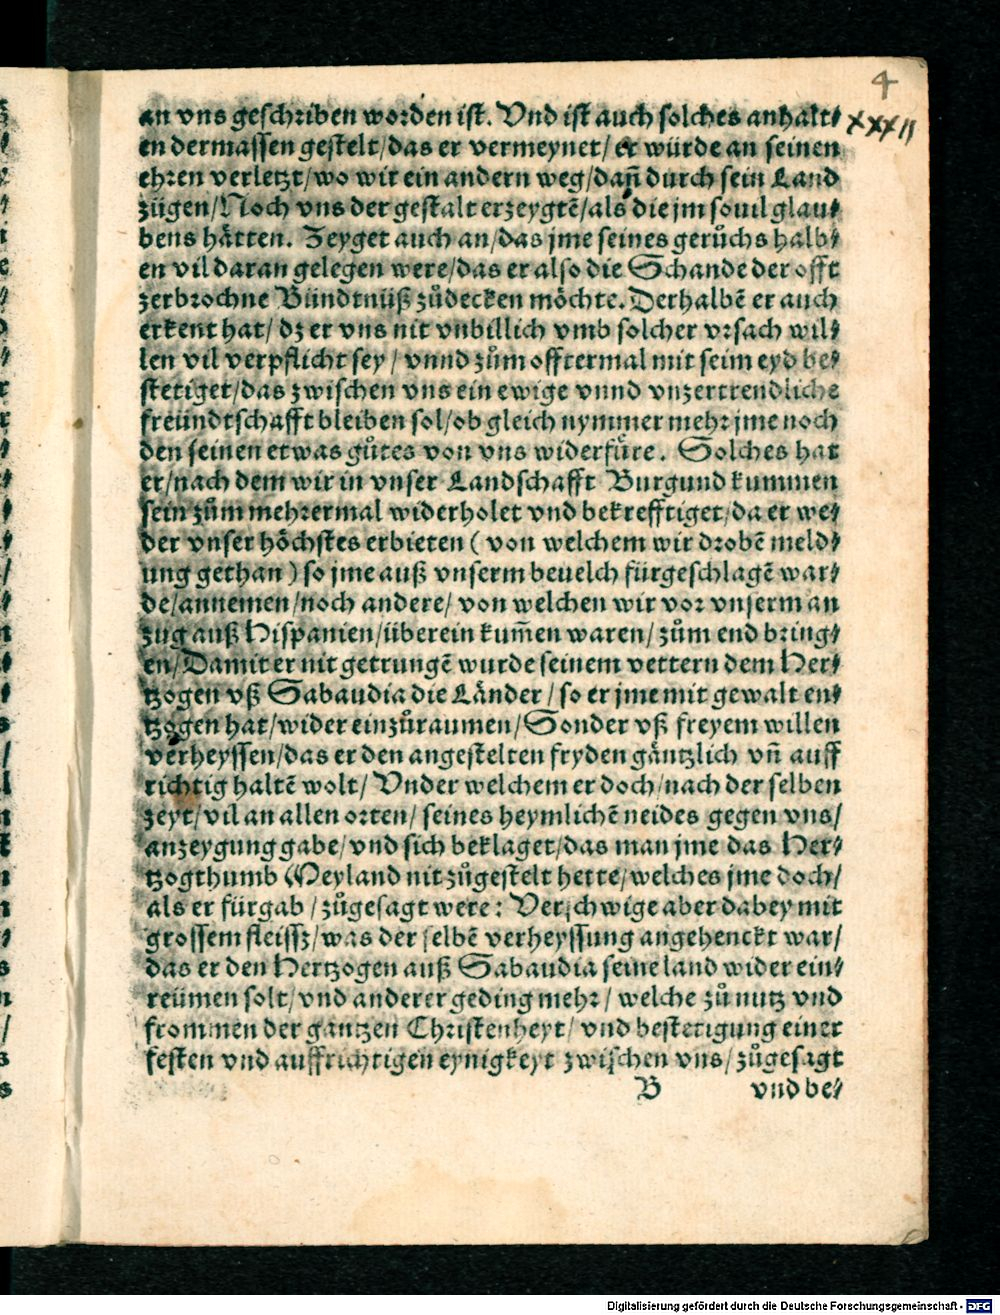 4
xxxii
an vns geschriben worden ist. Vnd ist auch solches anhalt⸗
en dermassen gestelt/das er vermeynet/ er würde an seinen
ehren verletzt/wo wir ein andern weg/dañ durch sein Land
zügen/Noch vns der gestalt erzeygtē/als die jm souil glau⸗
bens hätten. Zeyget auch an/das jme seines gerůchs halb⸗
en vil daran gelegen were/das er also die Schande der offt
zerbrochne Bündtnüß zůdecken möchte. Derhalbē er auch
erkent hat/ dz er vns nit vnbillich vmb solcher vrsach wil⸗
len vil verpflicht sey/ vnnd zům offtermal mit seim eyd be⸗
stetiget/das zwischen vns ein ewige vnnd vnzertrendliche
freündtschafft bleiben sol/ob gleich nymmer mehr jme noch
den seinen etwas gůtes von vns widerfüre. Solches hat
er/nach dem wir in vnser Landschafft Burgund kummen
sein zům mehrermal widerholet vnd bekrefftiget/da er we⸗
der vnser höchstes erbieten (von welchem wir drobē meld⸗
ung gethan) so jme auß vnserm beuelch fürgeschlagē war⸗
de/annemen/noch andere/ von welchen wir vor vnserm an
zug auß Hispanien/überein kum̃en waren/ zům end bring⸗
en/Damit er nit getrungē wurde seinem vettern dem Her⸗
tzogen vß Sabaudia die Länder/ so er jme mit gewalt en⸗
tzogen hat/wider einzůraumen/Sonder vß freyem willen
verheyssen/das er den angestelten fryden gäntzlich vñ auff
richtig haltē wolt/ Vnder welchem er doch/nach der selben
zeyt/vil an allen orten/ seines heymlichē neides gegen vns/
anzeygung gabe/vnd sich beklaget/das man jme das Her⸗
tzogthumb Meyland nit zůgestelt hette/welches jme doch/
als er fürgab/zůgesagt were: Verschwige aber dabey mit
grossem fleissz/was der selbē verheyssung angehenckt war/
das er den Hertzogen auß Sabaudia seine land wider ein⸗
reümen solt/vnd anderer geding mehr/ welche zů nutz vnd
frommen der gantzen Christenheyt/ vnd bestetigung einer
festen vnd auffrichtigen eynigkeyt zwischen vns/ zůgesagt
B vnd be⸗
Digitalisierung gefördert durch die Deutsche Forschungsgemeinschaft - DFG